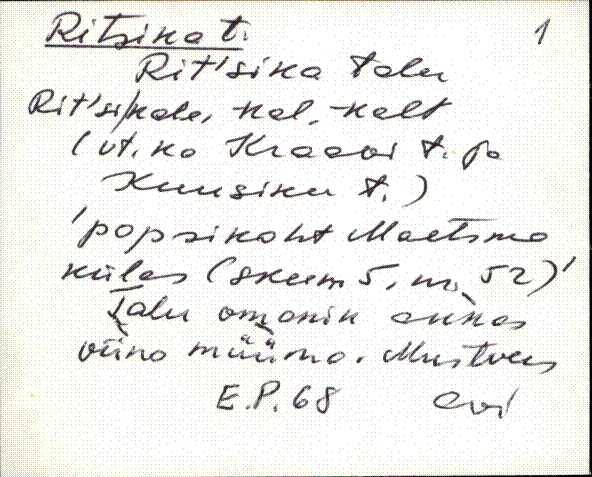 Ritsika t.
1
Rit'sika talu
Rit'si/kale, -kal, -kalt
(vt. ka Kraavi t. ja
Kuusiku t.)
'popsikoht Maetsma
külas (skeem 5, nr. 52)'
Talu omanik akkas
viina müüma. Mustvees
E.P. 68 Avi